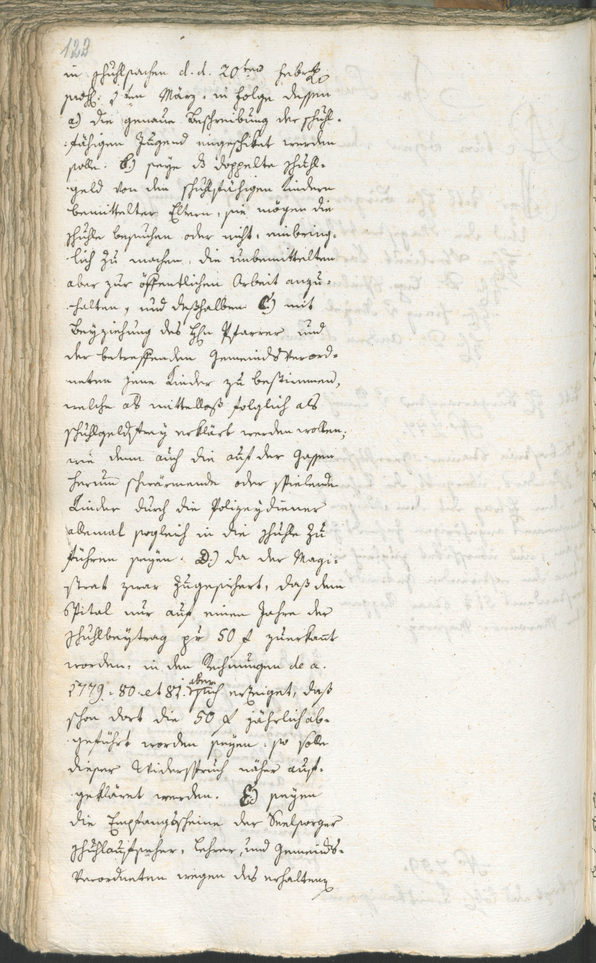 123
in Schulsachen d. d. 20ten Febr.
praes. 7 ten März. in folge dessen
a) die genaue Beschreibung der schul-
fähigen Jugend eingeschikt werden
solle. B) seye ds doppelte Schul-
geld von den schulfähigen Kindern
bemittelter Eltern, sie mögen die
Schule besuchen oder nicht, einbring-
lich zu machen, die unbemittelten
aber zur öffentlichen Arbeit anzu-
halten, und deßhalben C) mit
Beyziehung des Hln Pfarrer, und
der betreffenden Gemeindsverord-
neten jene Kinder zu bestimmen,
welche als mittellos folglich als
schulgeldfrey erklärt werden wollen,
wie denn auch die auf der Gassen
herum schwärmende oder spielende
Kinder durch die Polizeydiener
alemal sogleich in die Schule zu
führen seyen. D) da der Magi-
strat zwar zugesichert, daß dem
Spital nur auf einem Jahre der
Schulbeytrag pr 50 f zuerkant
worden, in den Rechnungen de a.
1779. 80. et 81. aber sich erzeiget, daß
schon dort die 50 f jährlich ab-
geführt worden seyen, so solle
dieser Widerspruch näher auf-
gekläret werden. E) seyen
die Empfangsscheine der Seelsorger
Schulaufseher, Lehrer, und Gemeinds-
Verordneten wegen des erhaltenen